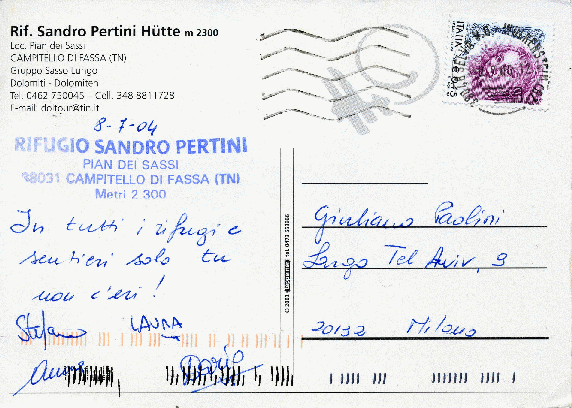 Rif. Sandro Pertini Hütte m 2300
Loc. Pian dei Sassi
CAMPITELLO DI FASSA (TN)
Gruppo Sasso Lungo
Dolomiti - Dolomiten
Tel. 0462 750045 - Cell. 348 8811728
E-mail: doltour@tin.it
8-7-04
RIFUGIO SANDRO PERTINI
PIAN DEI SASSI
38031 CAMPITELLO DI FASSA (TN)
Metri 2 300
In tutti i rifugi e
sentieri solo tu
non c'eri!
Stefano LAURA
Dario
Giuliano Paolini
Largo Tel Aviv, 9
20132 Milano
ITALIA